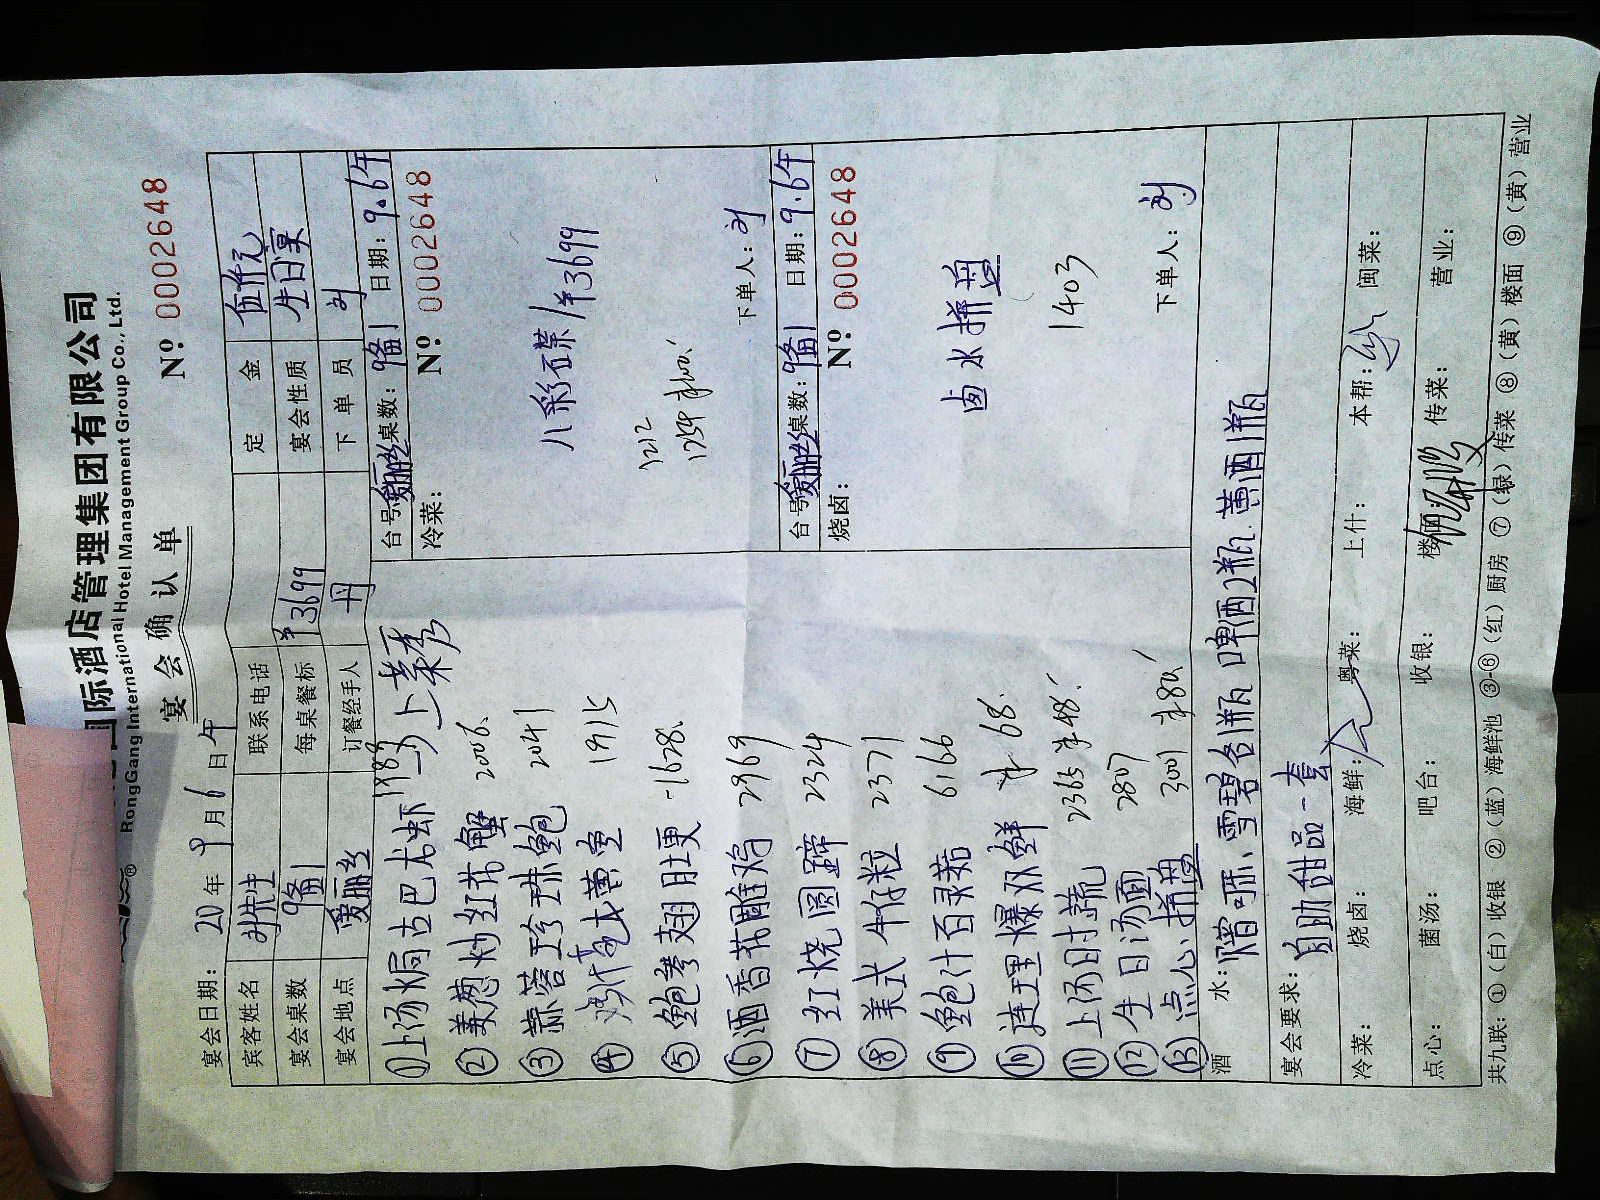 国际酒店管理集团有限公司
RongGang International Hotel Management Group Co., Ltd.
宴会确认单
Nº: 0002648
宴会日期: 20 年 9 月 6 日 午
宾客姓名 刘先生 联系电话 定金 伍仟元
宴会桌数 9备1 每桌餐标 ¥3699 宴会性质 生日宴
宴会地点 爱丽丝 订餐经手人 丹 下单员 刘
①上汤焗古巴龙虾 1989 上菜秀
②姜葱炒红花蟹 2006.
③蒜蓉珍珠鲍 2041
④ 1915
⑤鲍参翅肚更 -1628.
⑥酒香花雕鸡 2969
⑦红烧圆蹄 2324
⑧美式牛仔粒 2371
⑨鲍汁百灵菇 6166
⑩连理爆双鲜 68.
⑪上汤时蔬 2365 48.
⑫生日汤面 2807
⑬点心拼盘 3001 80.
台号: 爱丽丝 桌数: 9备1 日期: 9.6午
冷菜: Nº: 0002648
八彩石碟/¥3699
1212
1254
下单人: 刘
台号: 爱丽丝 桌数: 9备1 日期: 9.6午
烧卤: Nº: 0002648
卤水拼盘
1403
下单人: 刘
酒水: 赠可乐.雪碧各1瓶 啤酒2瓶.黄酒1瓶
宴会要求: 自助甜品一套
冷菜: 烧卤: 海鲜: 粤菜: 上什: 本帮: 闽菜:
点心: 菌汤: 吧台: 收银: 楼面: 传菜: 营业:
共九联: ①(白)收银 ②(蓝)海鲜池 ③-⑥(红)厨房 ⑦(绿)传菜 ⑧(黄)楼面 ⑨(黄)营业